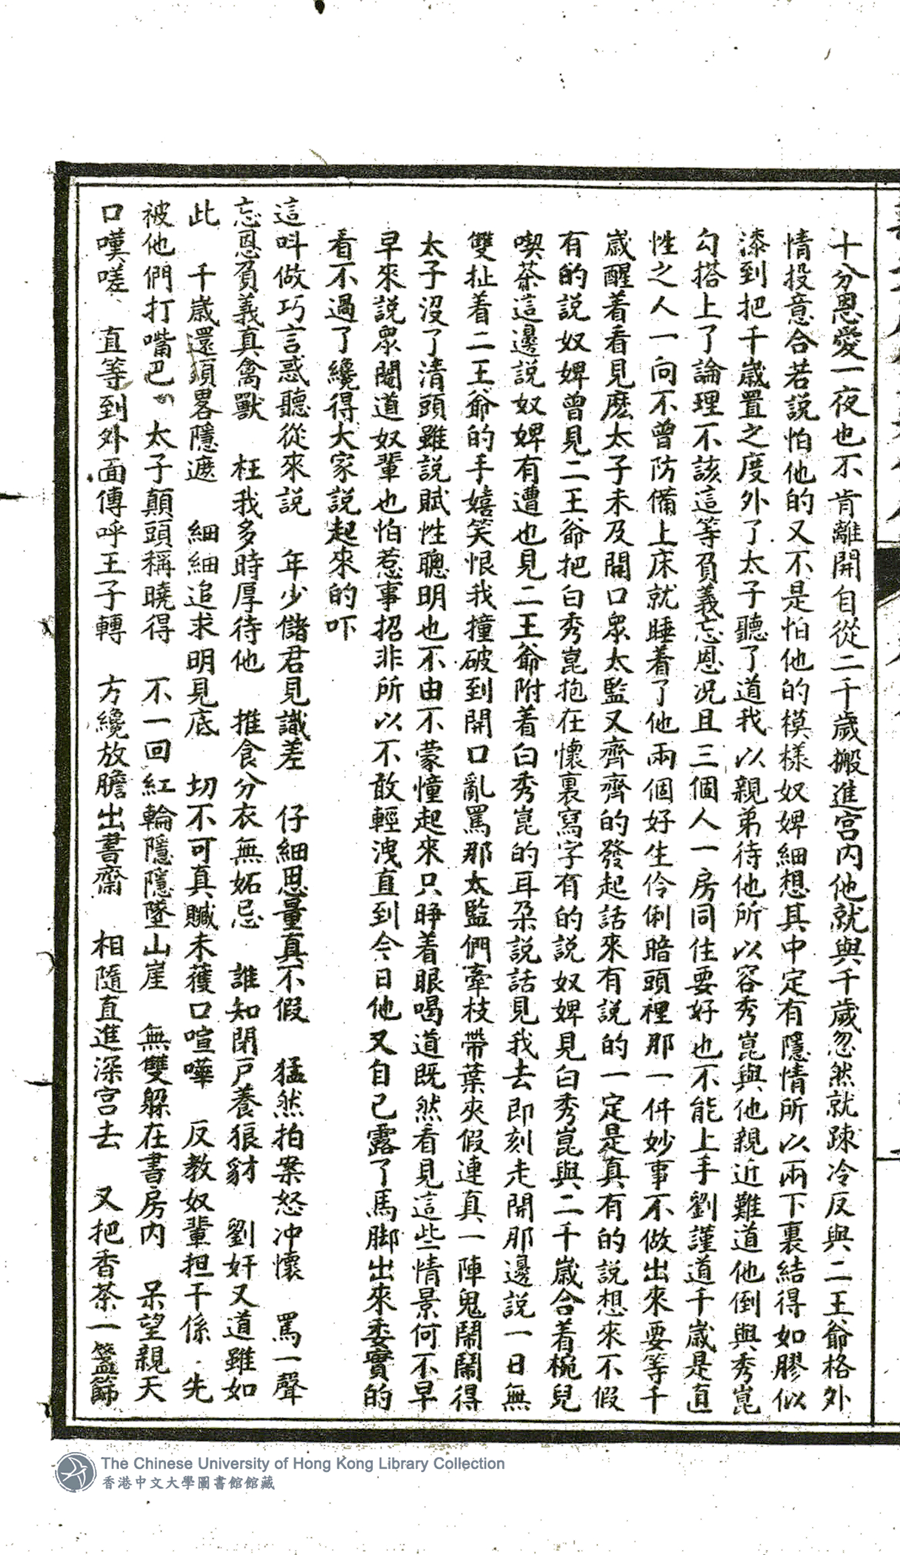 十分恩愛一夜也不肯離開自從二千歲搬進宮內他就與千歲忽然就疎冷反與二王爺格外
情投意合若說怕他的又不是怕他的模樣奴婢細想其中定有隱情所以兩下裏結得如膠似
漆到把千歲置之度外了太子聽了道我以親弟待他所以容秀崑與他親近難道他倒與秀崑
勾搭上了論理不該這等負義忘恩況且三個人一房同住要好也不能上手劉謹道千歲是直
性之人一向不曾防備上床就睡着了他兩個好生伶俐暗頭裡那一件妙事不做出來要等千
歲醒着看見麽太子未及開口眾太監又齊齊的發起話來有說的一定是真有的說想來不假
有的說奴婢曾見二王爺把白秀崑抱在懷裏寫字有的說奴婢見白秀崑與二千歲合着椀兒
喫茶這邊說奴婢有遭也見二王爺附着白秀崑的耳朶說話見我去即刻走開那邊說一日無
雙扯着二王爺的手嬉笑恨我撞破到開口亂罵那太監們牽枝帶葉夾假連真一陣鬼鬧鬧得
太子沒了清頭雖說賦性聰明也不由不蒙憧起來只睜着眼喝道既然看見這些情景何不早
早來說眾閹道奴輩也怕惹事招非所以不敢輕洩直到今日他又自己露了馬脚出來委實的
看不過了纔得大家說起來的吓
這呌做巧言惑聽從來說　年少儲君見識差　仔細思量真不假　猛然拍案怒冲懷　罵一聲
忘恩負義真禽獸　枉我多時厚待他　推食分衣無妬忌　誰知閉戶養狼豺　劉奸又道雖如
此　千歲還須畧隱遮　細細追求明見底　切不可真贓未獲口喧嘩　反教奴輩担干係　先
被他們打嘴巴　太子顛頭稱曉得　不一回紅輪隱隱墜山崖　無雙躱在書房內　呆望親天
口嘆嗟　直等到外面傳呼王子轉　方纔放膽出書齋　相隨直進深宮去　又把香茶一盞篩
The Chinese University of Hong Kong Library Collection
香港中文大學圖書館館藏